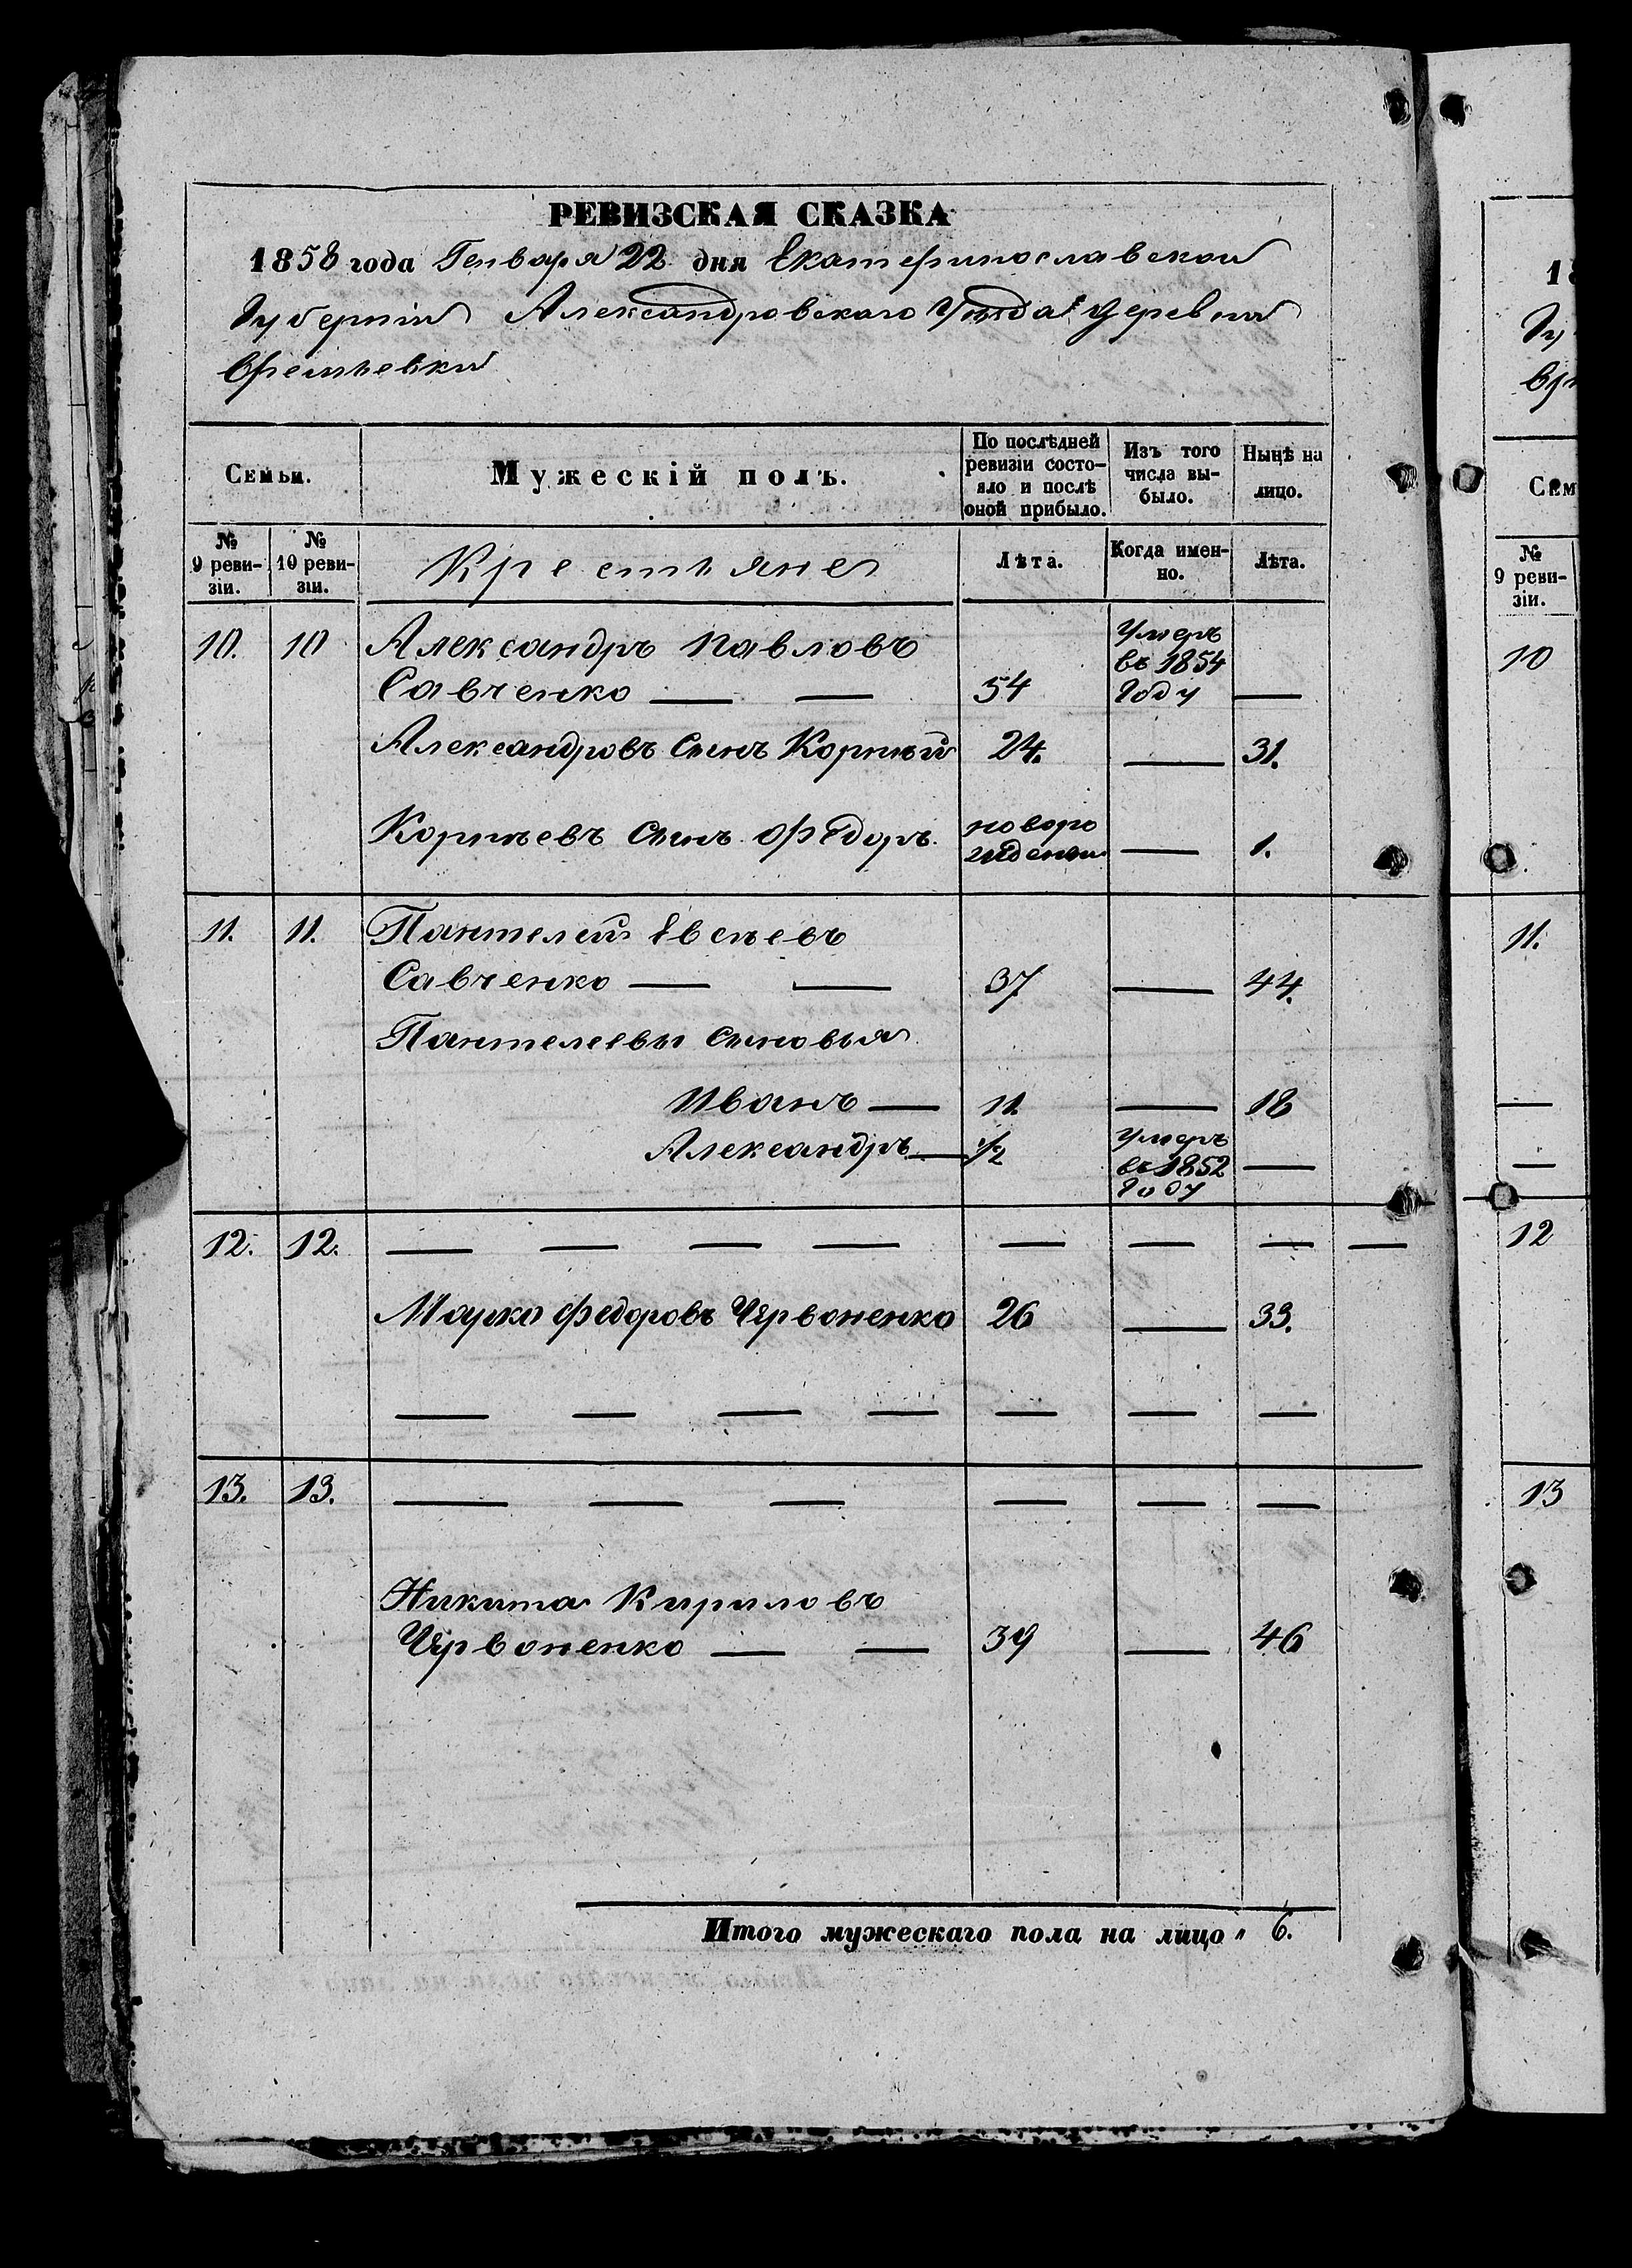 РЕВИЗСКАЯ СКАЗКА
1858 года Генваря 22 дня Екатеринославской
Губернии Александровскаго Уѣзда деревни
Семьи. Мужескій полъ. По послѣдней ревизіи состояло и послѣ оной прибыло. Изъ того числа выбыло. Нынѣ на лицо.
№ 9 ревизіи. № 10 ревизіи. Крестьяне Лѣта. Когда именно. Лѣта.
10. 10 Александръ Павловъ Умеръ
Савченко — — 54 въ 1854 году —
Александровъ сынъ Корнѣй 24. — 31.
Корнѣевъ сынъ Федоръ новорожденный — 1.
11. 11. Пантелей Евсѣевъ
Савченко — — 37 — 44.
Пантелеевы сыновья
Иванъ — 11. — 18
Александръ — 1/2 Умеръ въ 1852 году —
12. 12. — — — — — — — —
Марко Федоровъ Червоненко 26 — 33.
— — — — — — —
13. 13. — — — — — —
Никита Кириловъ
Червоненко — — 39 — 46
Итого мужескаго пола на лицо „ 6.
18
Гу
Сем
№
9 реви-
зіи.
10
11.
—
—
12
13